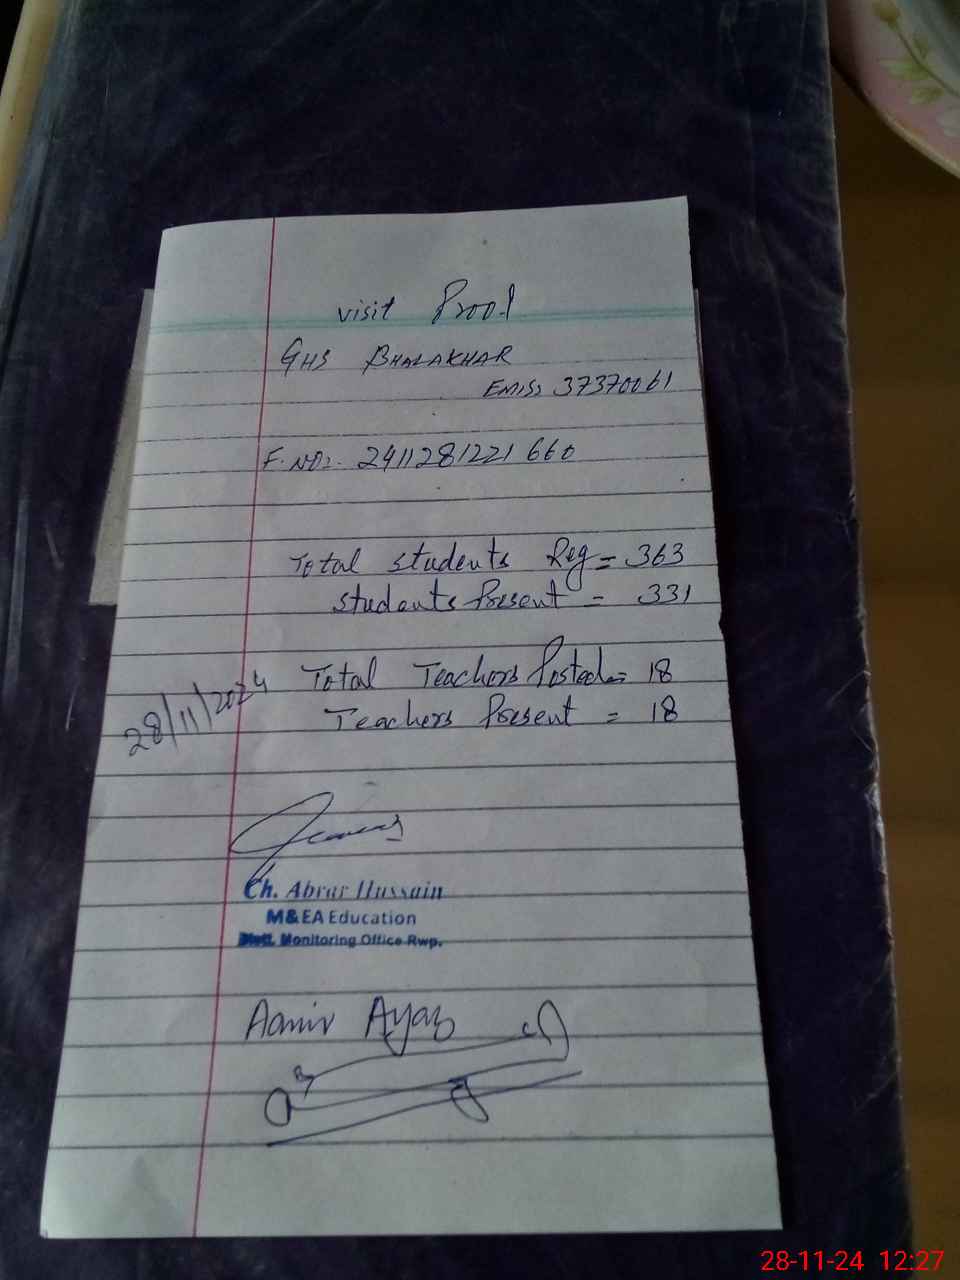 visit Proof
GHS BHALAKHAR
EMIS: 37370061
F.NO:- 2411281221660
Total students Reg = 363
students Present = 331
Total Teachers Posted = 18
28/11/2024
Teachers Present = 18
Ch. Abrar Hussain
M&EA Education
Distt. Monitoring Office Rwp.
Aamir Ayaz
28-11-24 12:27